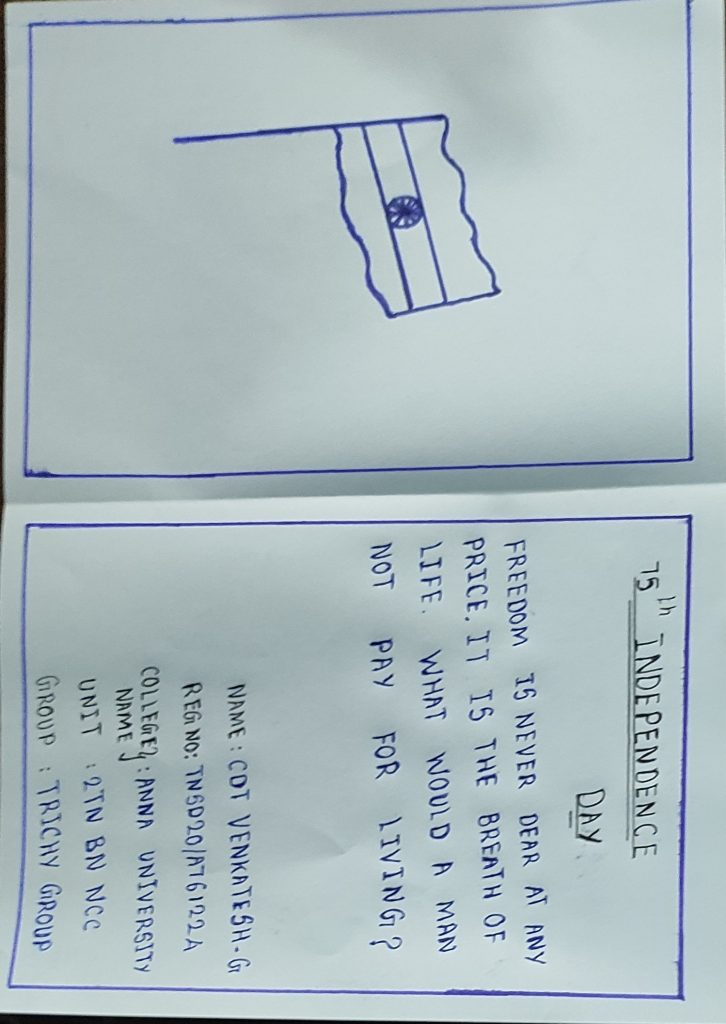 75th INDEPENDENCE
DAY
FREEDOM IS NEVER DEAR AT ANY
PRICE. IT IS THE BREATH OF
LIFE. WHAT WOULD A MAN
NOT PAY FOR LIVING?
NAME : CDT VENKATESH-G
REG NO: TNSD20/A76122A
COLLEGE
NAME } : ANNA UNIVERSITY
UNIT : 2TN BN NCC
GROUP : TRICHY GROUP